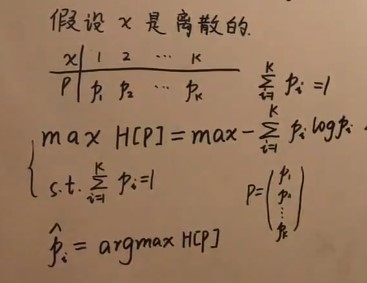 假设 x 是离散的.
x | 1 2 ⋯ K
P | p₁ p₂ ⋯ pₖ ∑ᵢ₌₁ᴷ pᵢ = 1
max H[P] = max - ∑ᵢ₌₁ᴷ pᵢ log pᵢ.
s.t. ∑ᵢ₌₁ᴷ pᵢ = 1
P = (p₁ p₂ ⋮ pₖ)
p̂ᵢ = argmax H[P]